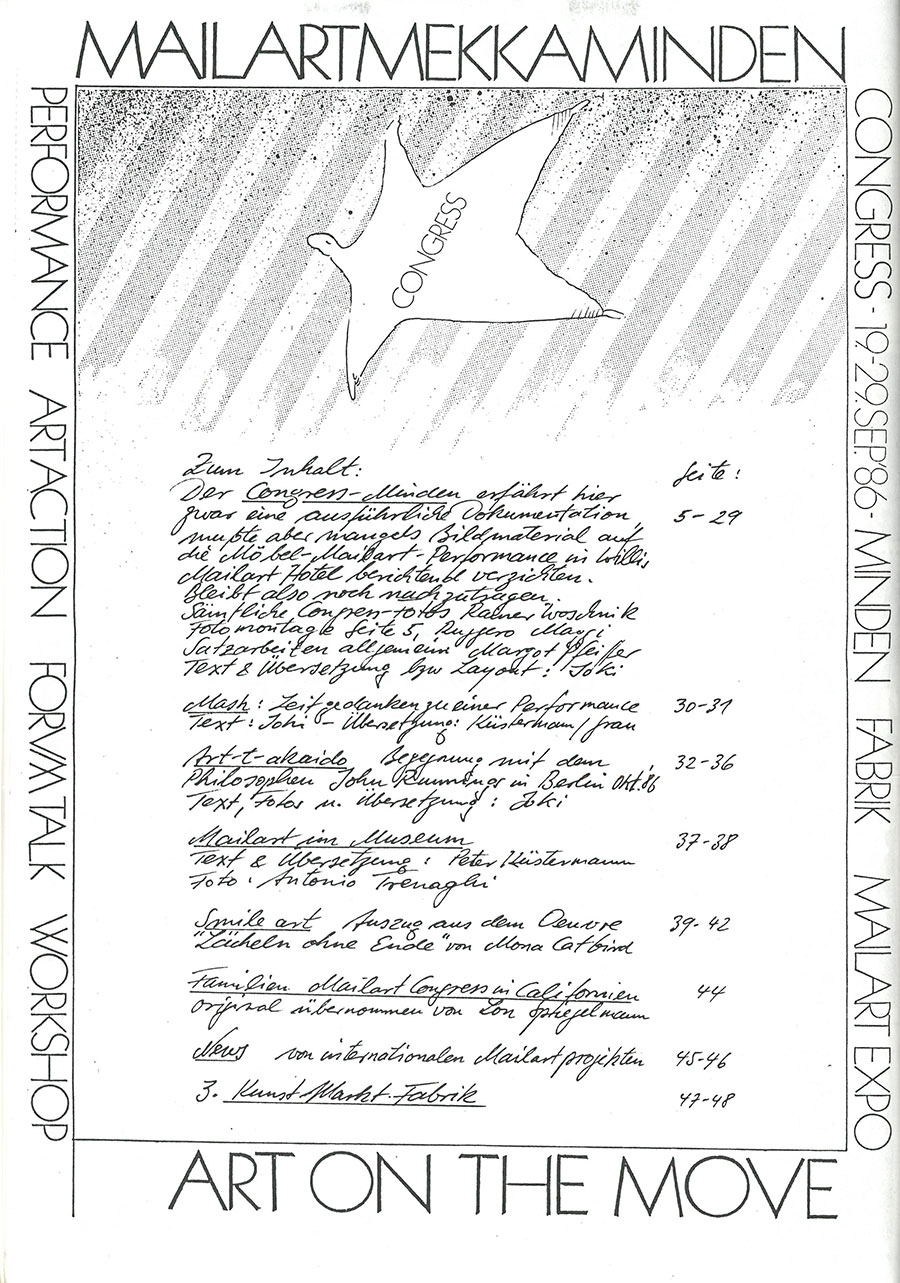 MAILARTMEKKAMINDEN
PERFORMANCE ART ACTION FORVM TALK WORKSHOP
CONGRESS - 19.-29.SEP.'86 - MINDEN FABRIK MAILART EXPO
CONGRESS
Zum Inhalt: Seite:
Der Congress-Minden erfährt hier
zwar eine ausführliche Dokumentation, 5-29
mußte aber mangels Bildmaterial auf
die Möbel-Mailart-Performance in Willis
Mailart Hotel berichtend verzichten.
Bleibt also noch nachzutragen.
Sämtliche Congress-Fotos Rainer Woschnik
Fotomontage Seite 5, Ruggero Maggi
Satzarbeiten allgemein Margot Pfeiffer
Text & Übersetzung bzw Layout: Joki
Mash: Zeitgedanken zu einer Performance 30-31
Text: Joki - Übersetzung: Küstermann/
Art-t-akaido Begegnung mit dem 32-36
Philosophen John Rummings in Berlin Okt. 86
Text, Fotos u. Übersetzung: Joki
Mailart im Museum 37-38
Text & Übersetzung: Peter Küstermann
Foto: Antonio Trenaghi
Smile art Auszug aus dem Oeuvre 39-42
"Lächeln ohne Ende" von Mona Catbird
Familien Mailart Congress in Californien 44
original übernommen von Lon Spiegelmann
News von internationalen Mailartprojekten 45-46
3. Kunst-Markt-Fabrik 47-48
ART ON THE MOVE